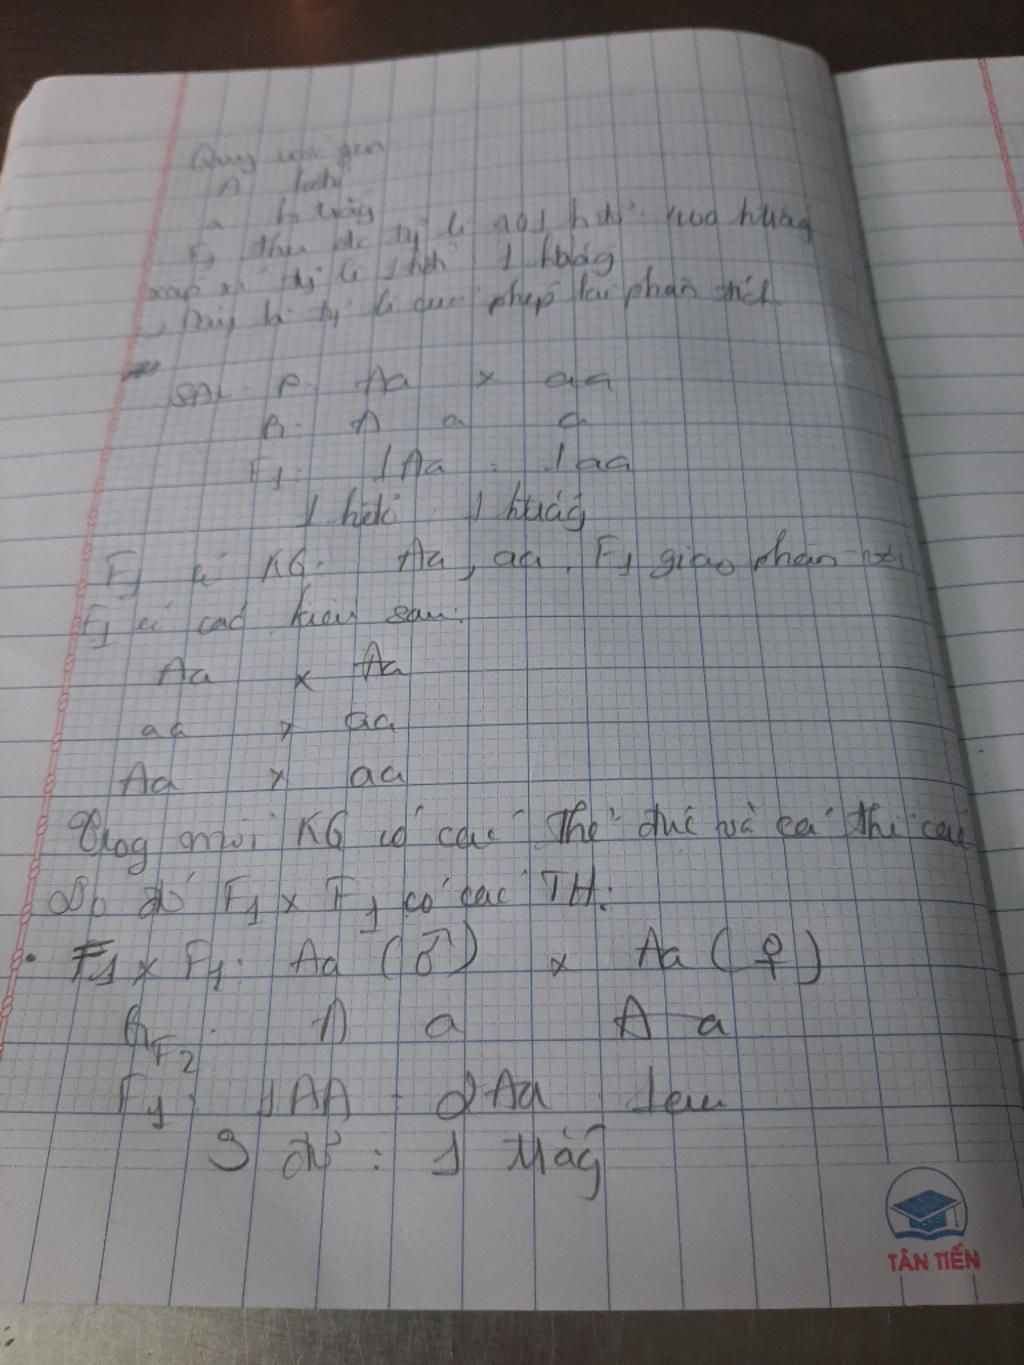 Quy ước gen
A hđỏ
a htrắng
F1 thu đc tỷ lệ 901 hđỏ htrắng
xấp xỉ tỷ lệ 1 hđỏ 1 htrắg
Đây là tỷ lệ của phép lai phân tích
SĐL: P: Aa x aa
G: A a a
F1: 1Aa : 1aa
1 hđỏ 1 htrắg
F1 có KG: Aa, aa. F1 giao phấn
F1 có các kiểu sau:
Aa x Aa
aa x aa
Aa x aa
Trog mỗi KG có các thể đực và cá thể cái
Do đó F1 x F1 có các TH:
F1 x F1: Aa (♂) x Aa (♀)
GF2: A a A a
F1: 1AA 2Aa 1aa
3 đỏ : 1 trắg
TÂN TIẾN